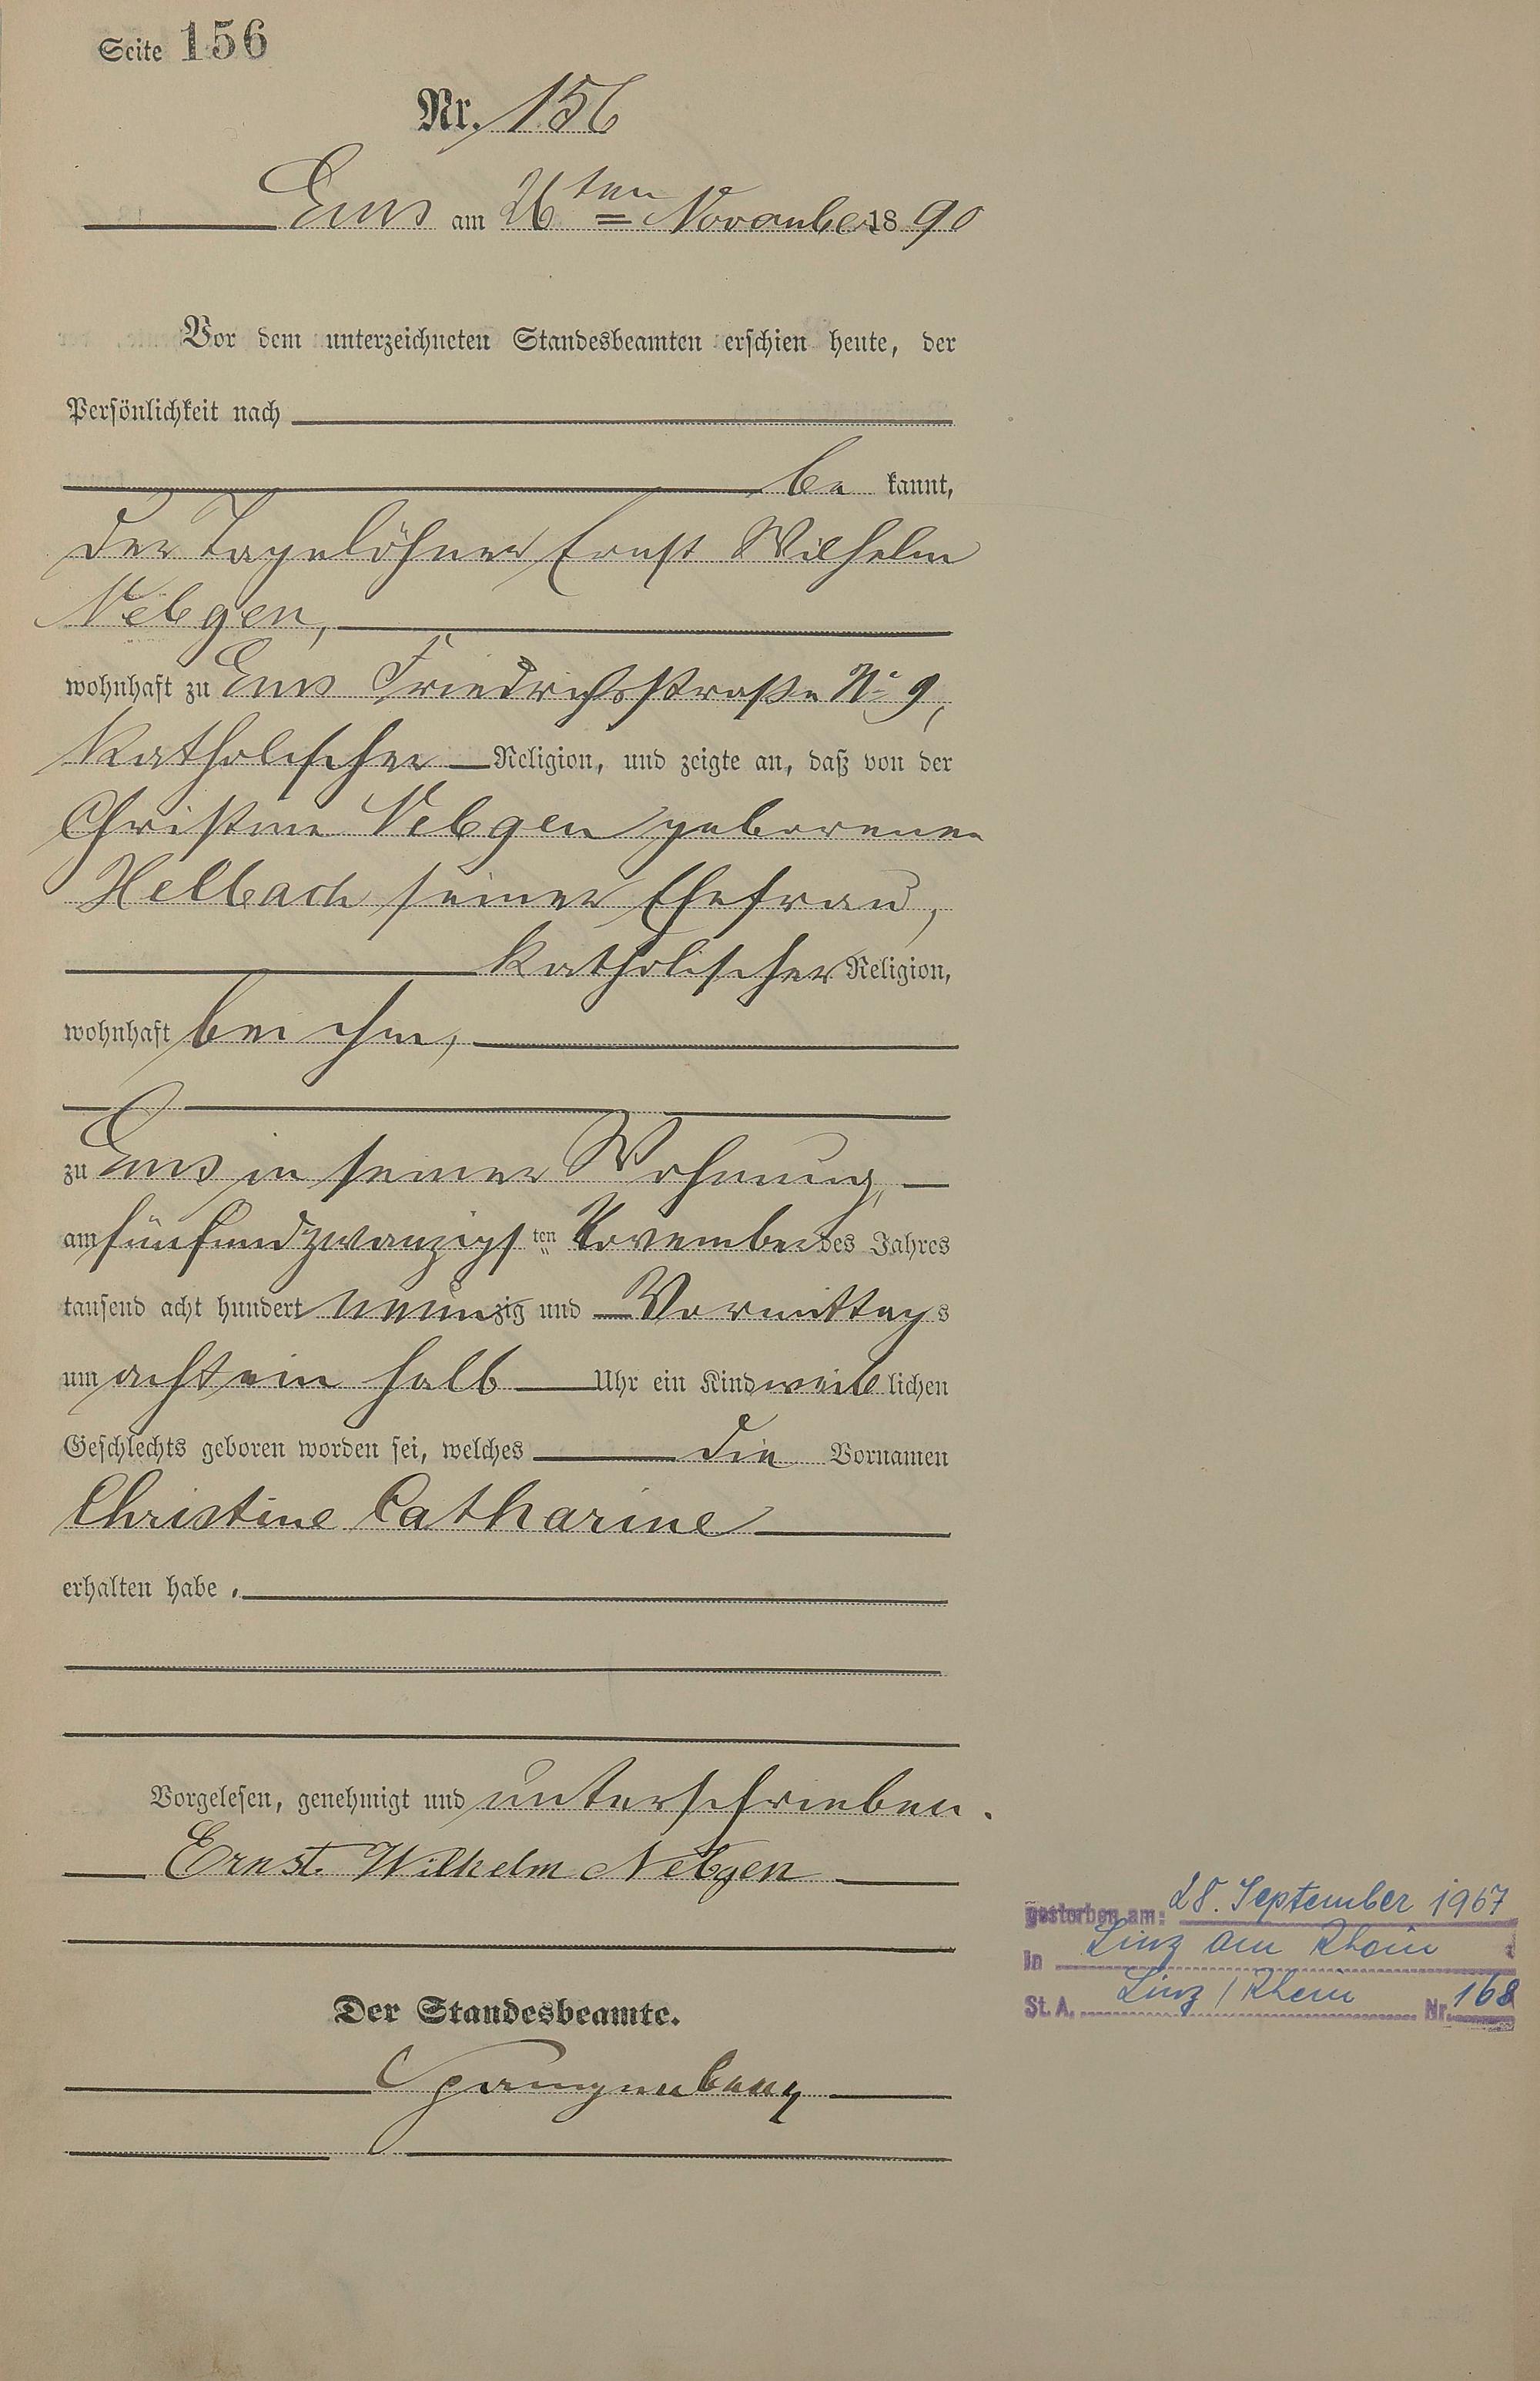 Seite 156
Nr. 156
Ems am 26ten November 1890
Vor dem unterzeichneten Standesbeamten erschien heute, der
Persönlichkeit nach
be kannt,
der Tagelöhner Ernst Wilhelm
Nebgen,
wohnhaft zu Ems Friedrichsstraße No 9,
katholischer Religion, und zeigte an, daß von der
Christine Nebgen geborenen
Helbach seiner Ehefrau,
katholischer Religion,
wohnhaft bei ihm,
zu Ems in seiner Wohnung,
am fünfundzwanzigsten November des Jahres
tausend acht hundert neunzig und Vormittags
um acht ein halb Uhr ein Kind weiblichen
Geschlechts geboren worden sei, welches die Vornamen
Christine Catharine
erhalten habe.
Vorgelesen, genehmigt und unterschrieben.
Ernst Wilhelm Nebgen
Der Standesbeamte.
Spangenberg
gestorben am: 28. September 1967
in Linz am Rhein
St. A. Linz / Rhein Nr. 168